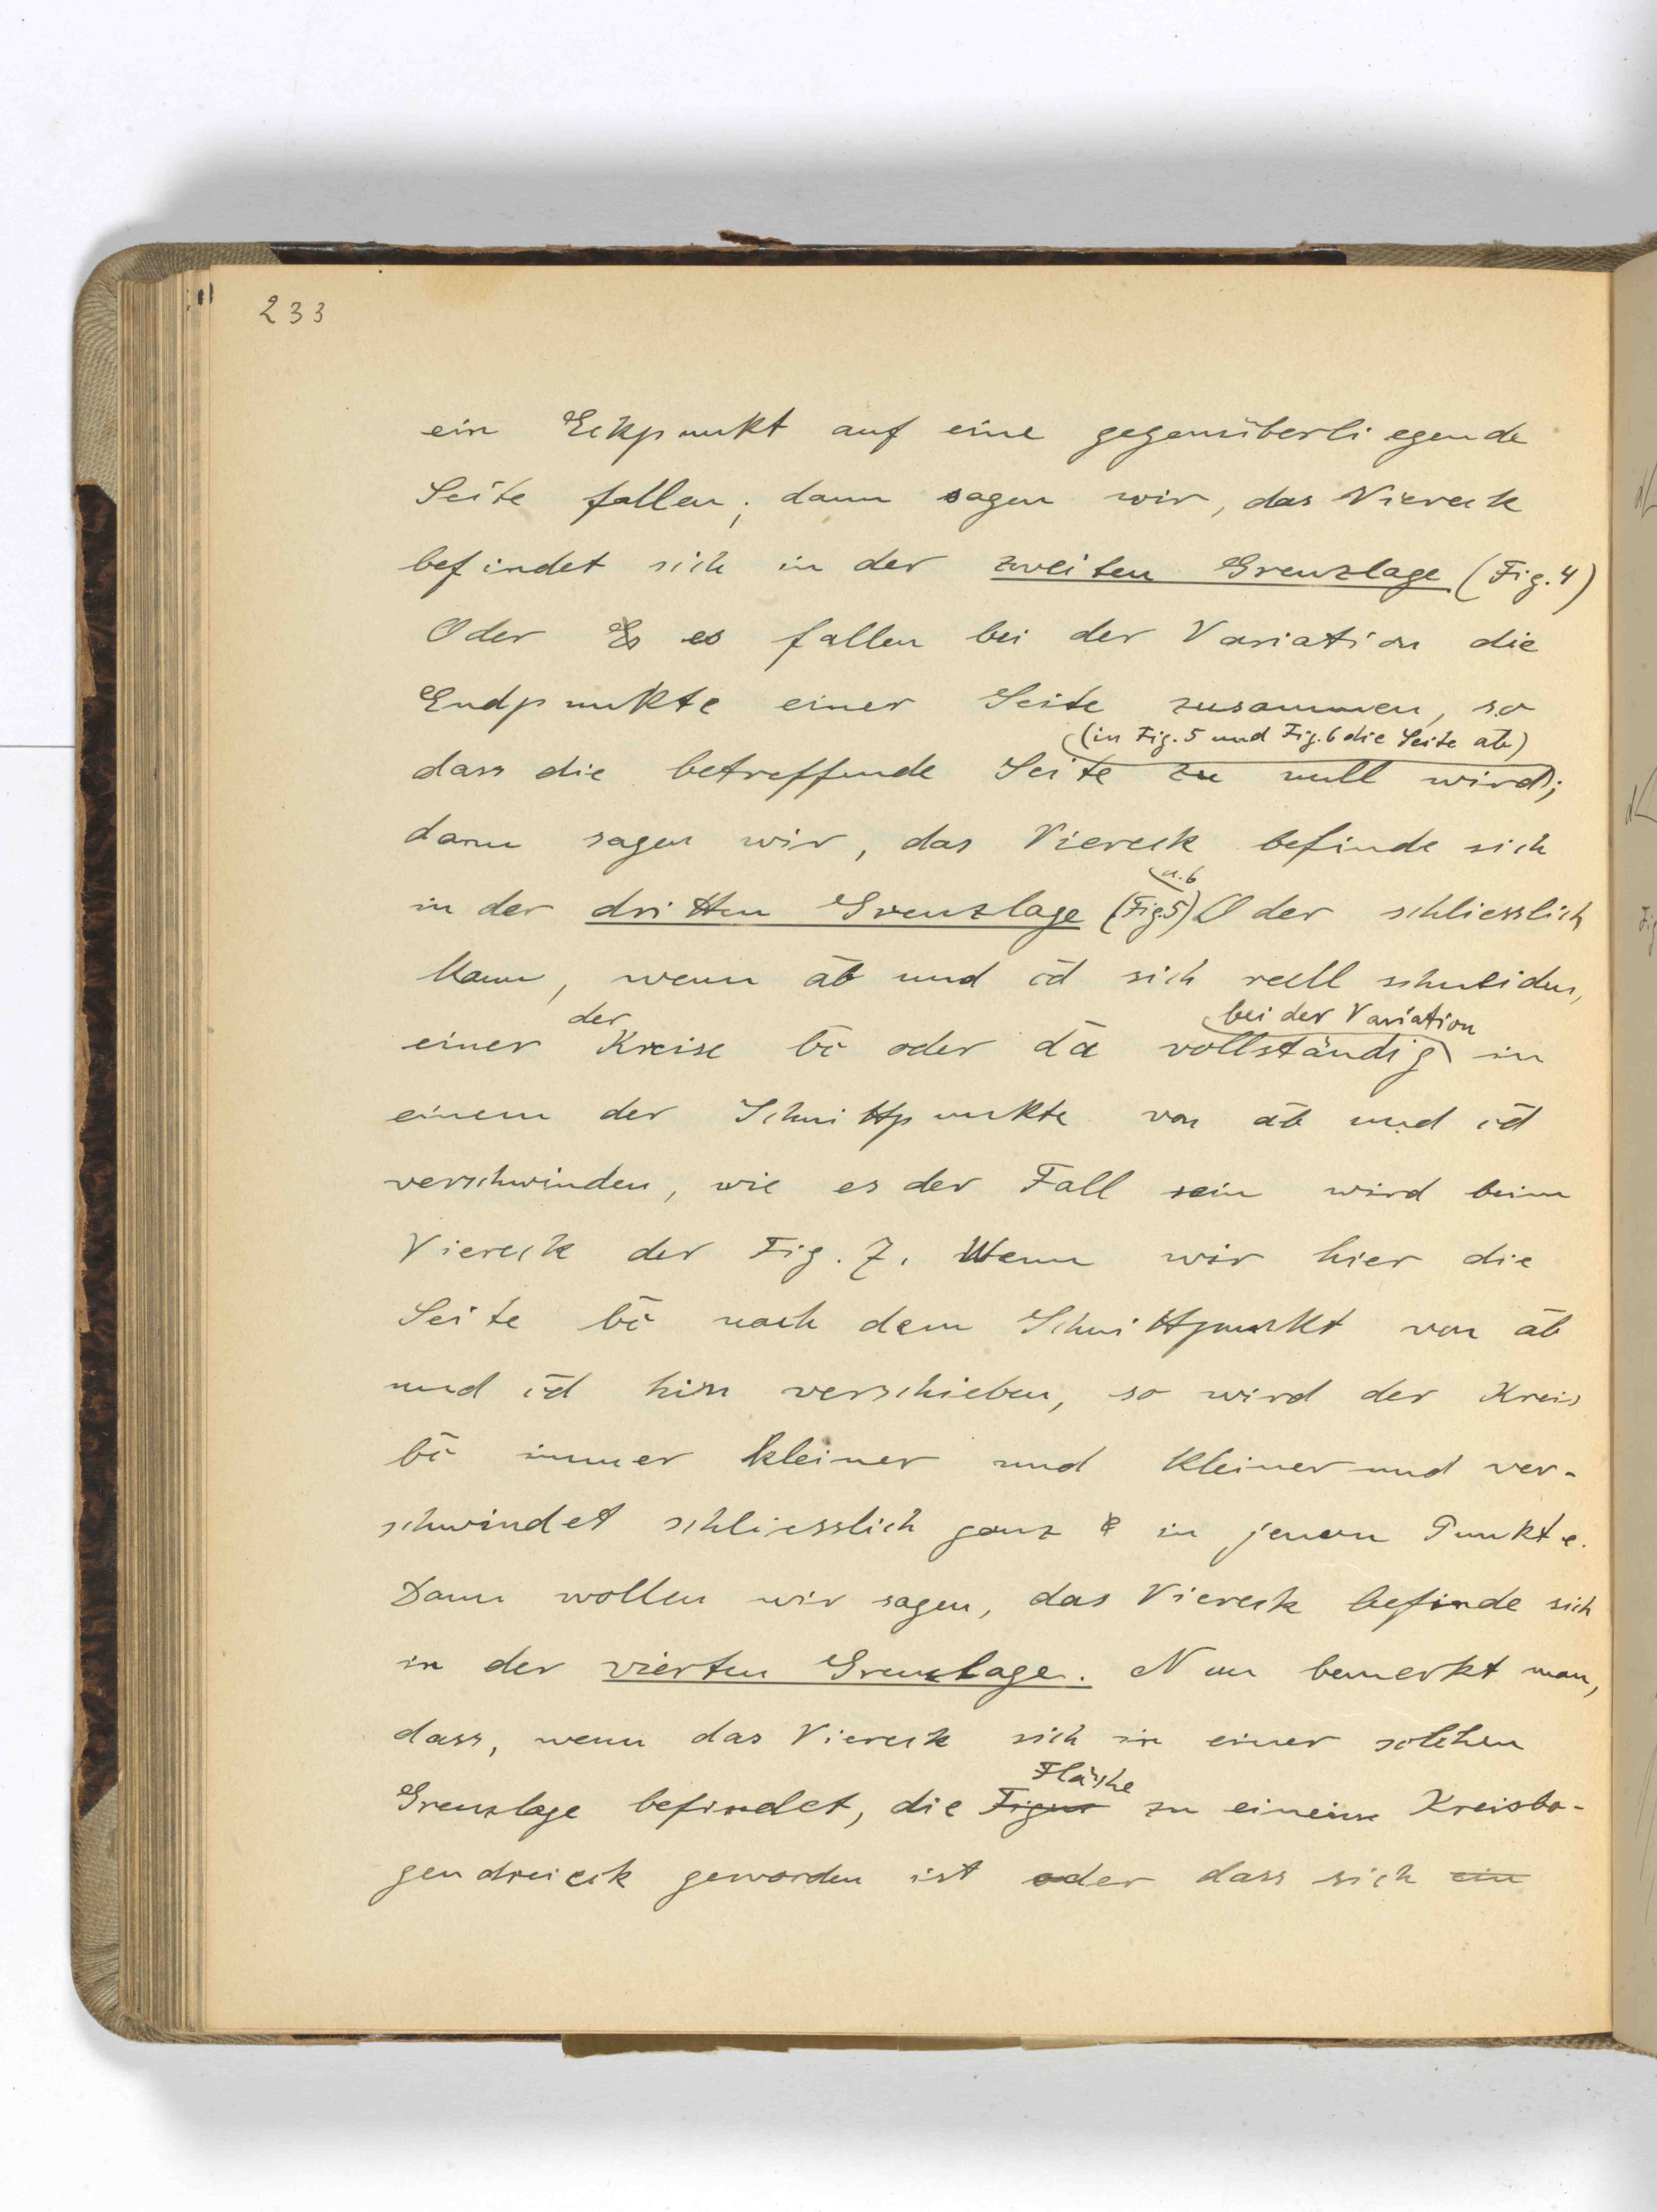 233
ein Eckpunkt auf eine gegenüberliegende
Seite fallen; dann sagen wir, das Viereck
befindet sich in der zweiten Grenzlage (Fig. 4)
Oder Es es fallen bei der Variation die
Endpunkte einer Seite zusammen, so
(in Fig. 5 und Fig. 6 die Seite a̅b̅)
dass die betreffende Seite zu null wird;
dann sagen wir, das Viereck befinde sich
u. 6
in der dritten Grenzlage (Fig 5) Oder schliesslich
kann, wenn a̅b̅ und c̅d̅ sich reell schneiden,
der bei der Variation
einer Kreise b̅c̅ oder d̅a̅ vollständig in
einem der Schnittpunkte von a̅b̅ und c̅d̅
verschwinden, wie es der Fall sein wird beim
Viereck der Fig. 7. Wenn wir hier die
Seite b̅c̅ nach dem Schnittpunkt von a̅b̅
und c̅d̅ hin verschieben, so wird der Kreis
b̅c̅ immer kleiner und kleiner und ver-
schwindet schliesslich ganz in jenem Punkte.
Dann wollen wir sagen, das Viereck befinde sich
in der vierten Grenzlage. Nun bemerkt man,
dass, wenn das Viereck sich in einer solchen
Fläche
Grenzlage befindet, die Figur zu einem Kreisbo-
gendreieck geworden ist oder dass sich ein